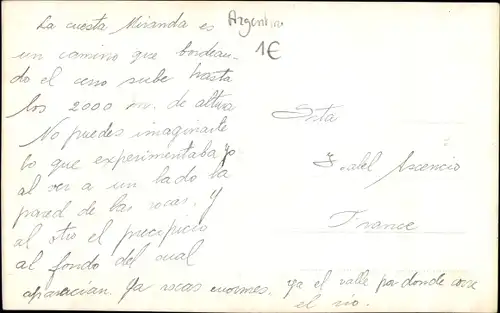 La cuesta Miranda es
un camino que bordean-
do el cerro sube hasta
los 2000 m. de altura
No puedes imaginarte
lo que experimentaba yo
al ver a un lado la
pared de las rocas. Y
al otro el precipicio
al fondo del cual
aparecian. Ya rocas enormes. ya el valle por donde corre
el río.
Argentin
1€
Srta
Isabel Ascencio
France